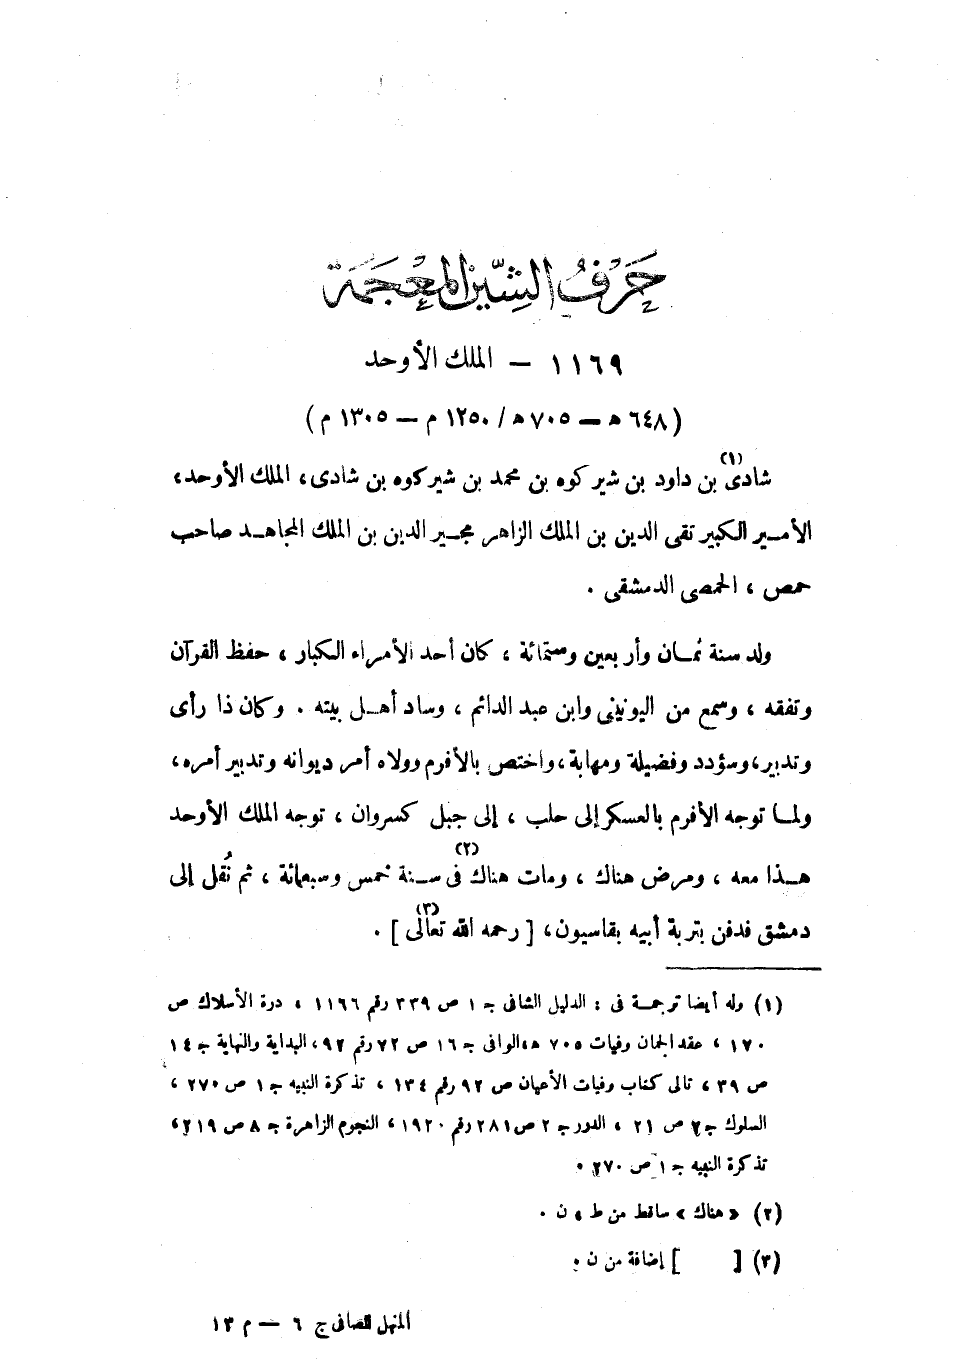 حرف الشين المعجمة
١١٦٩ – الملك الأوحد
(٦٤٨ هـ – ٧٠٥ هـ / ١٢٥٠ م – ١٣٠٥ م)
شادى(١) بن داود بن شيركوه بن محمد بن شيركوه بن شادى، الملك الأوحد،
الأمير الكبير تقى الدين بن الملك الزاهر مجير الدين بن الملك المجاهد صاحب
حمص ، الحمصى الدمشقى .
ولد سنة ثمان وأربعين وستمائة ، كان أحد الأمراء الكبار ، حفظ القرآن
وتفقه ، وسمع من اليونينى وابن عبد الدائم ، وساد أهل بيته . وكان ذا رأى
وتدبير، وسؤدد وفضيلة ومهابة، واختص بالأفرم وولاه أمر ديوانه وتدبير أمره،
ولما توجه الأفرم بالعسكر إلى حلب ، إلى جبل كسروان ، توجه الملك الأوحد
هذا معه ، ومرض هناك ، ومات هناك(٢) فى سنة خمس وسبعمائة ، ثم نُقل إلى
دمشق فدفن بتربة أبيه بقاسيون، [ رحمه الله تعالى(٣) ] .
(١) وله أيضا ترجمة فى : الدليل الشافى جـ ١ ص ٣٣٩ رقم ١١٦٦ ، درة الأسلاك ص
١٧٠ ، عقد الجمان وفيات ٧٠٥ هـ، الوافى جـ ١٦ ص ٧٢ رقم ٩٢، البداية والنهاية جـ ١٤
ص ٣٩ ، تالى كتاب وفيات الأعيان ص ٩٢ رقم ١٣٤ ، تذكرة النبيه جـ ١ ص ٢٧٠ ،
السلوك جـ ٢ ص ٢١ ، الدرر جـ ٢ ص ٢٨١ رقم ١٩٢٠ ، النجوم الزاهرة جـ ٨ ص ٢١٩ ،
تذكرة النبيه جـ ١ ص ٢٧٠ .
(٢) « هناك » ساقط من ط ، ن .
(٣) [ ] إضافة من ن .
المنهل الصافى ج ٦ – م ١٣